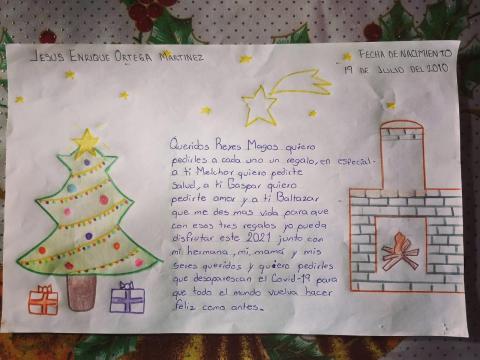 JESUS ENRIQUE ORTEGA MARTINEZ
FECHA DE NACIMIENTO
19 DE JULIO DEL 2010
Queridos Reyes Magos quiero
pedirles a cada uno un regalo, en especial.
a ti Melchor quiero pedirte
salud, a ti Gaspar quiero
pedirte amor y a ti Baltazar
que me des mas vida para que
con esos tres regalos yo pueda
disfrutar este 2021 junto con
mi hermana, mi mamá y mis
seres queridos, y quiero pedirles
que desaparescan el Covid-19 para
que todo el mundo vuelva hacer
feliz como antes.